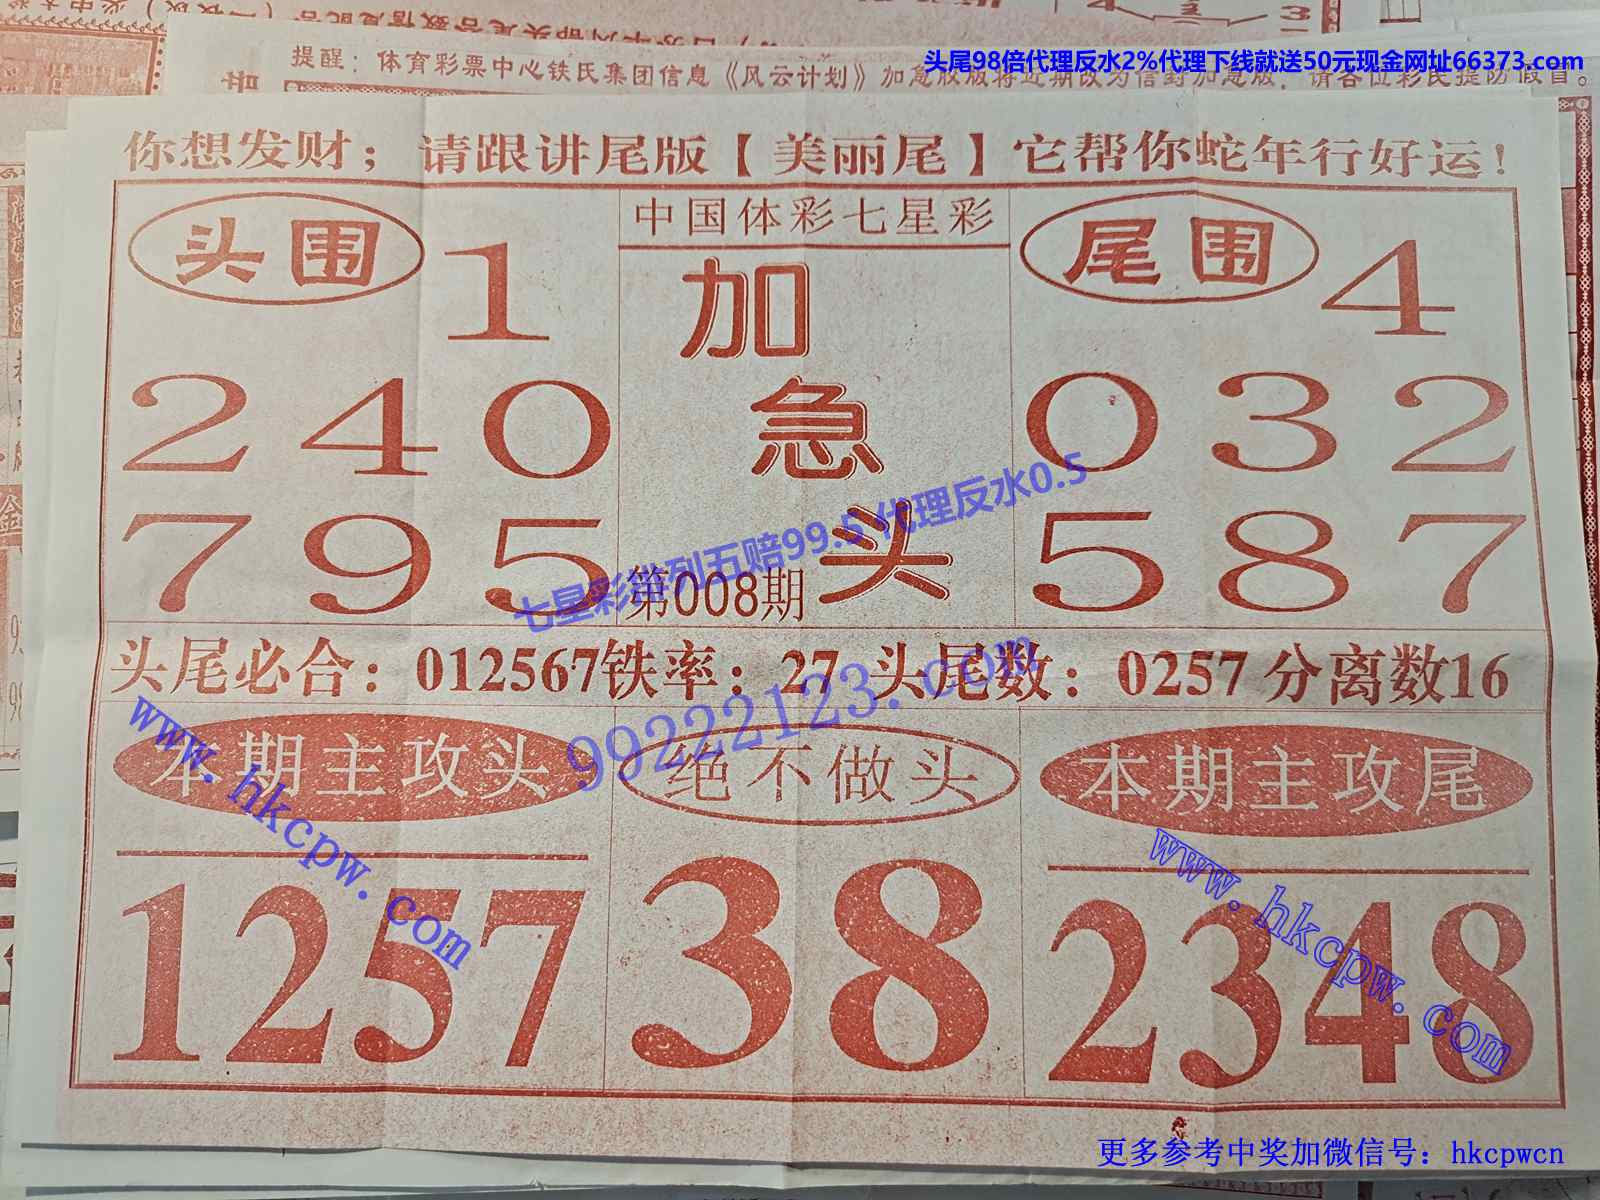 头尾98倍代理反水2%代理下线就送50元现金网址66373.com
提醒：体育彩票中心铁氏集团信息《风云计划》加急放版将近期改为信封加急版，请各位彩民提防假冒。
你想发财；请跟讲尾版【美丽尾】它帮你蛇年行好运！
头围
1
240
795
中国体彩七星彩
加
急
头
第008期
尾围
4
032
587
七星彩排列五赔99.5 代理反水0.5
头尾必合：012567铁率：27 头尾数：0257 分离数16
99222123.com
本期主攻头
绝不做头
本期主攻尾
1257
38
2348
www.hkcpw.com
www.hkcpw.com
更多参考中奖加微信号：hkcpwcn